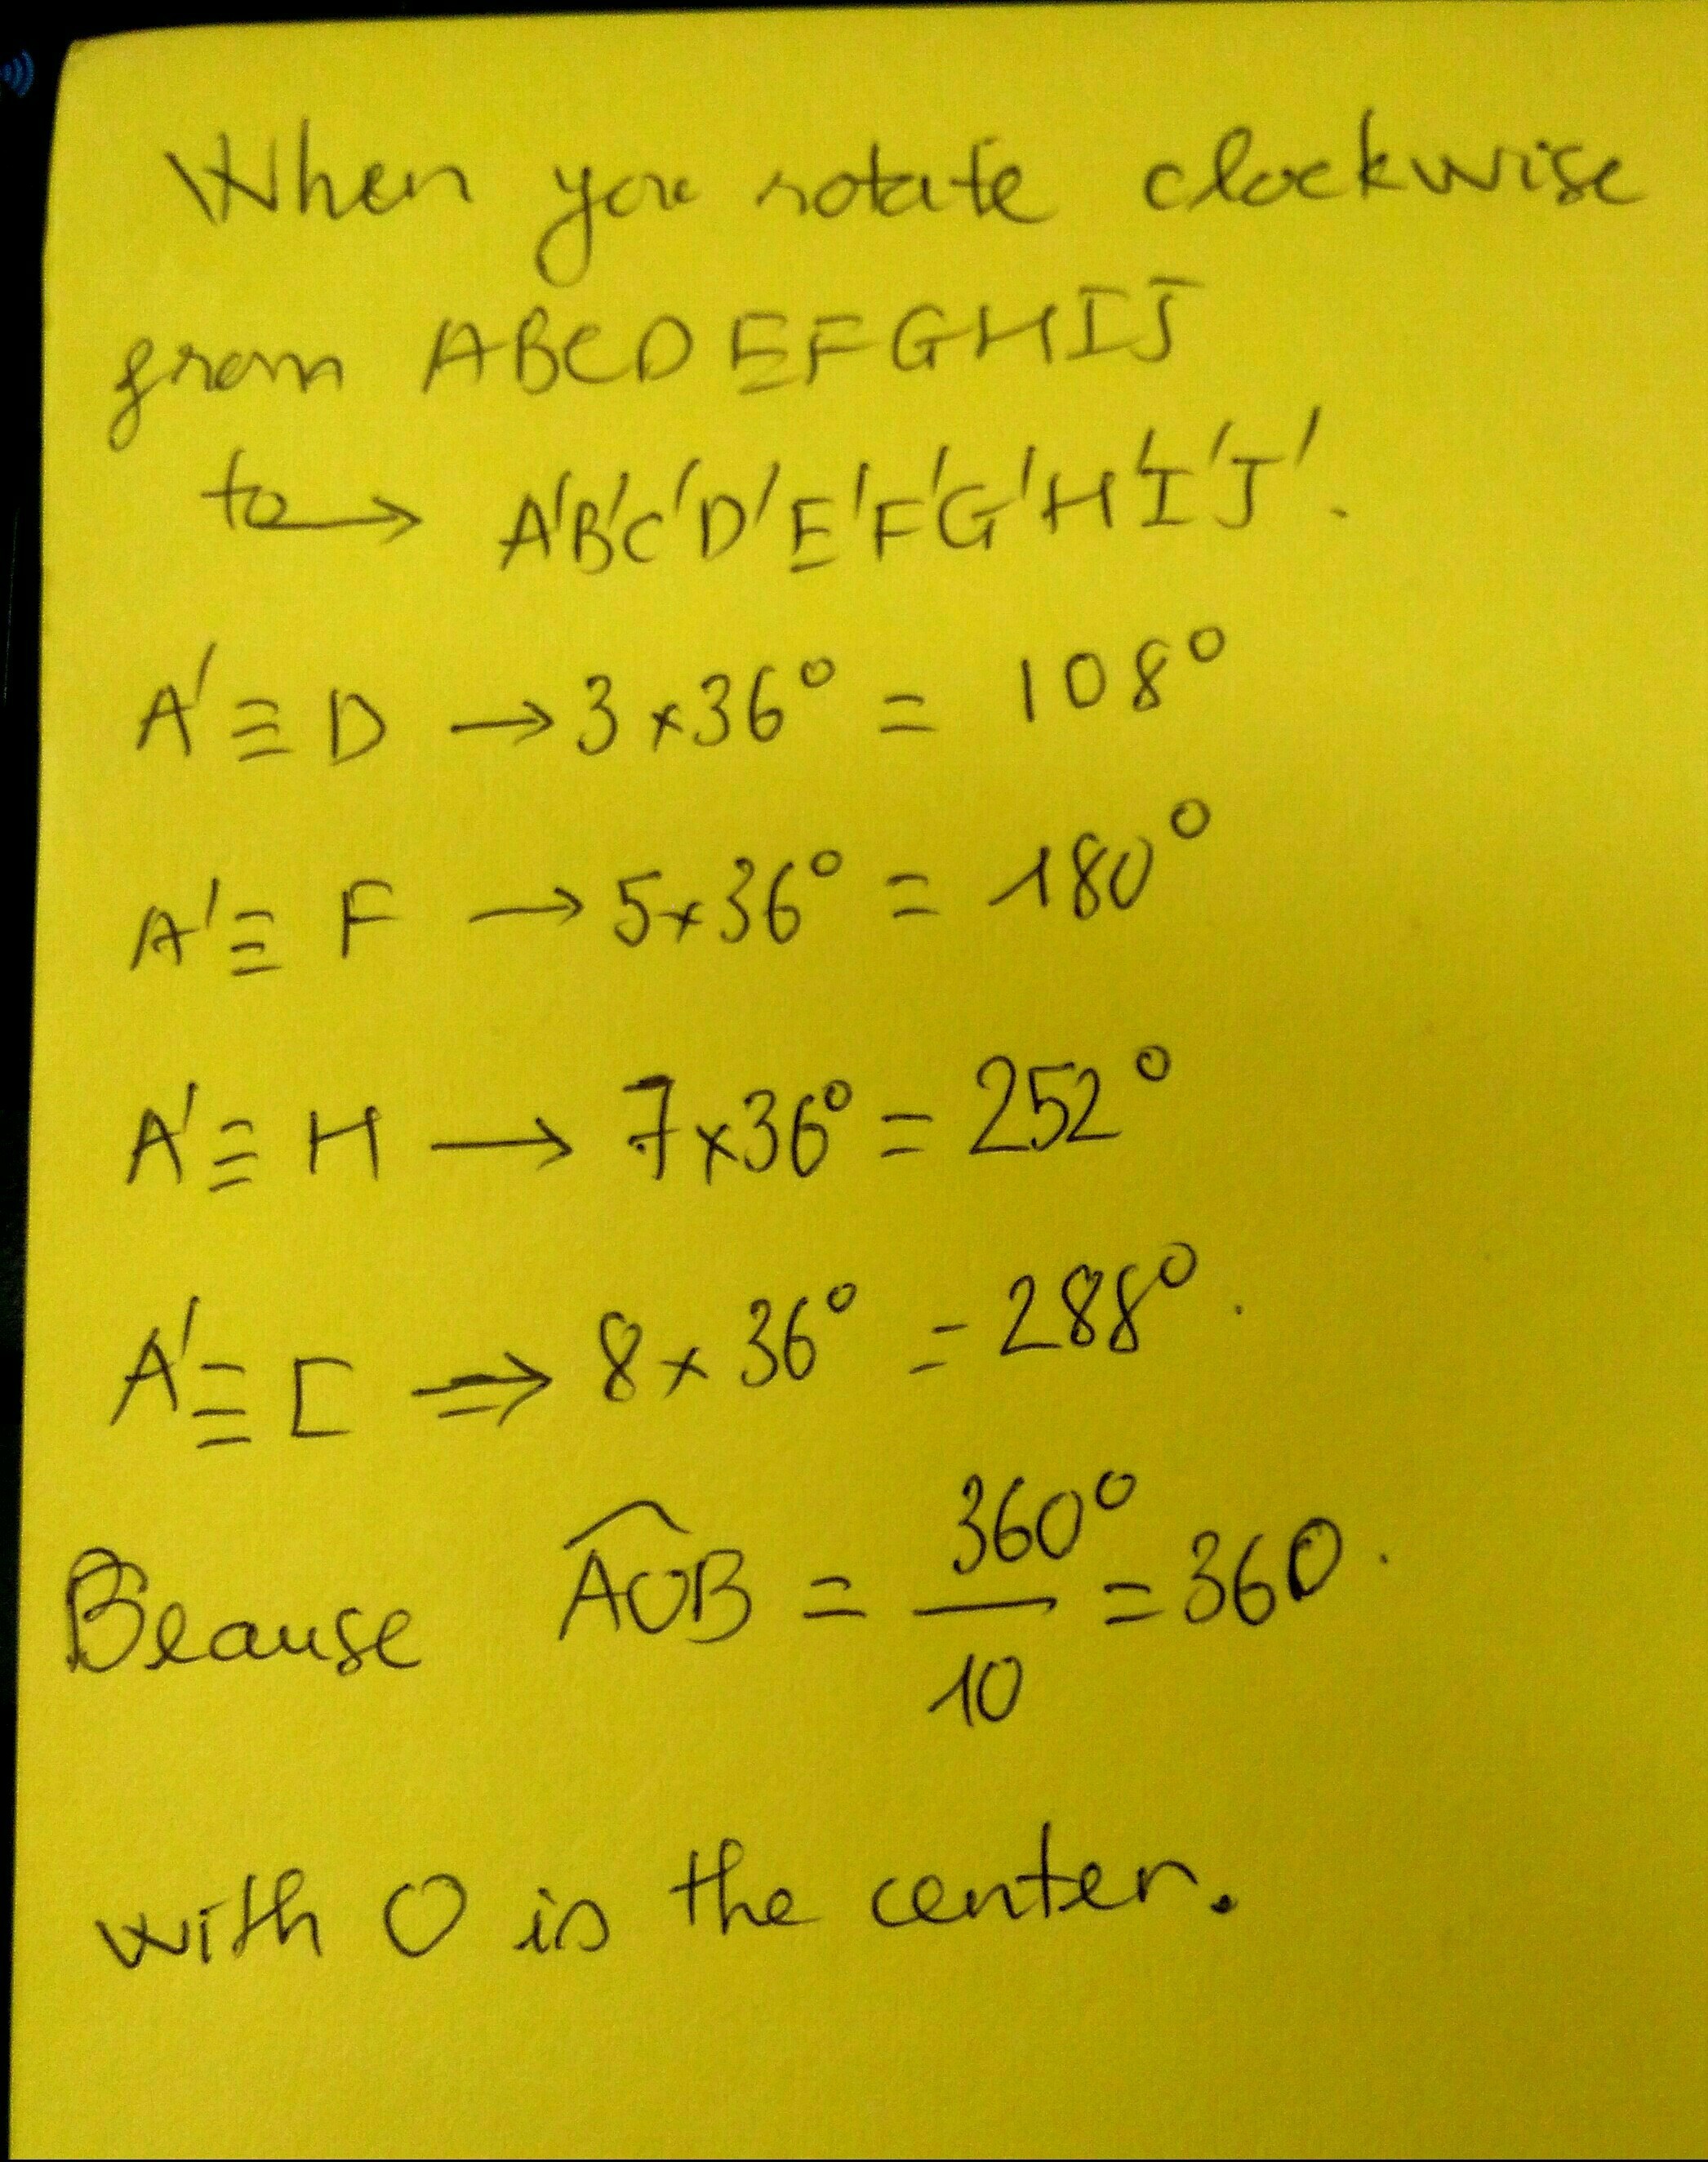 When you rotate clockwise
from ABCDEFGHIJ
to → A'B'C'D'E'F'G'H'I'J'.
A' ≡ D → 3 × 36° = 108°
A' ≡ F → 5 × 36° = 180°
A' ≡ H → 7 × 36° = 252°
A' ≡ C ⇒ 8 × 36° = 288°.
Beause AOB = 360° / 10 = 360.
with O is the center.